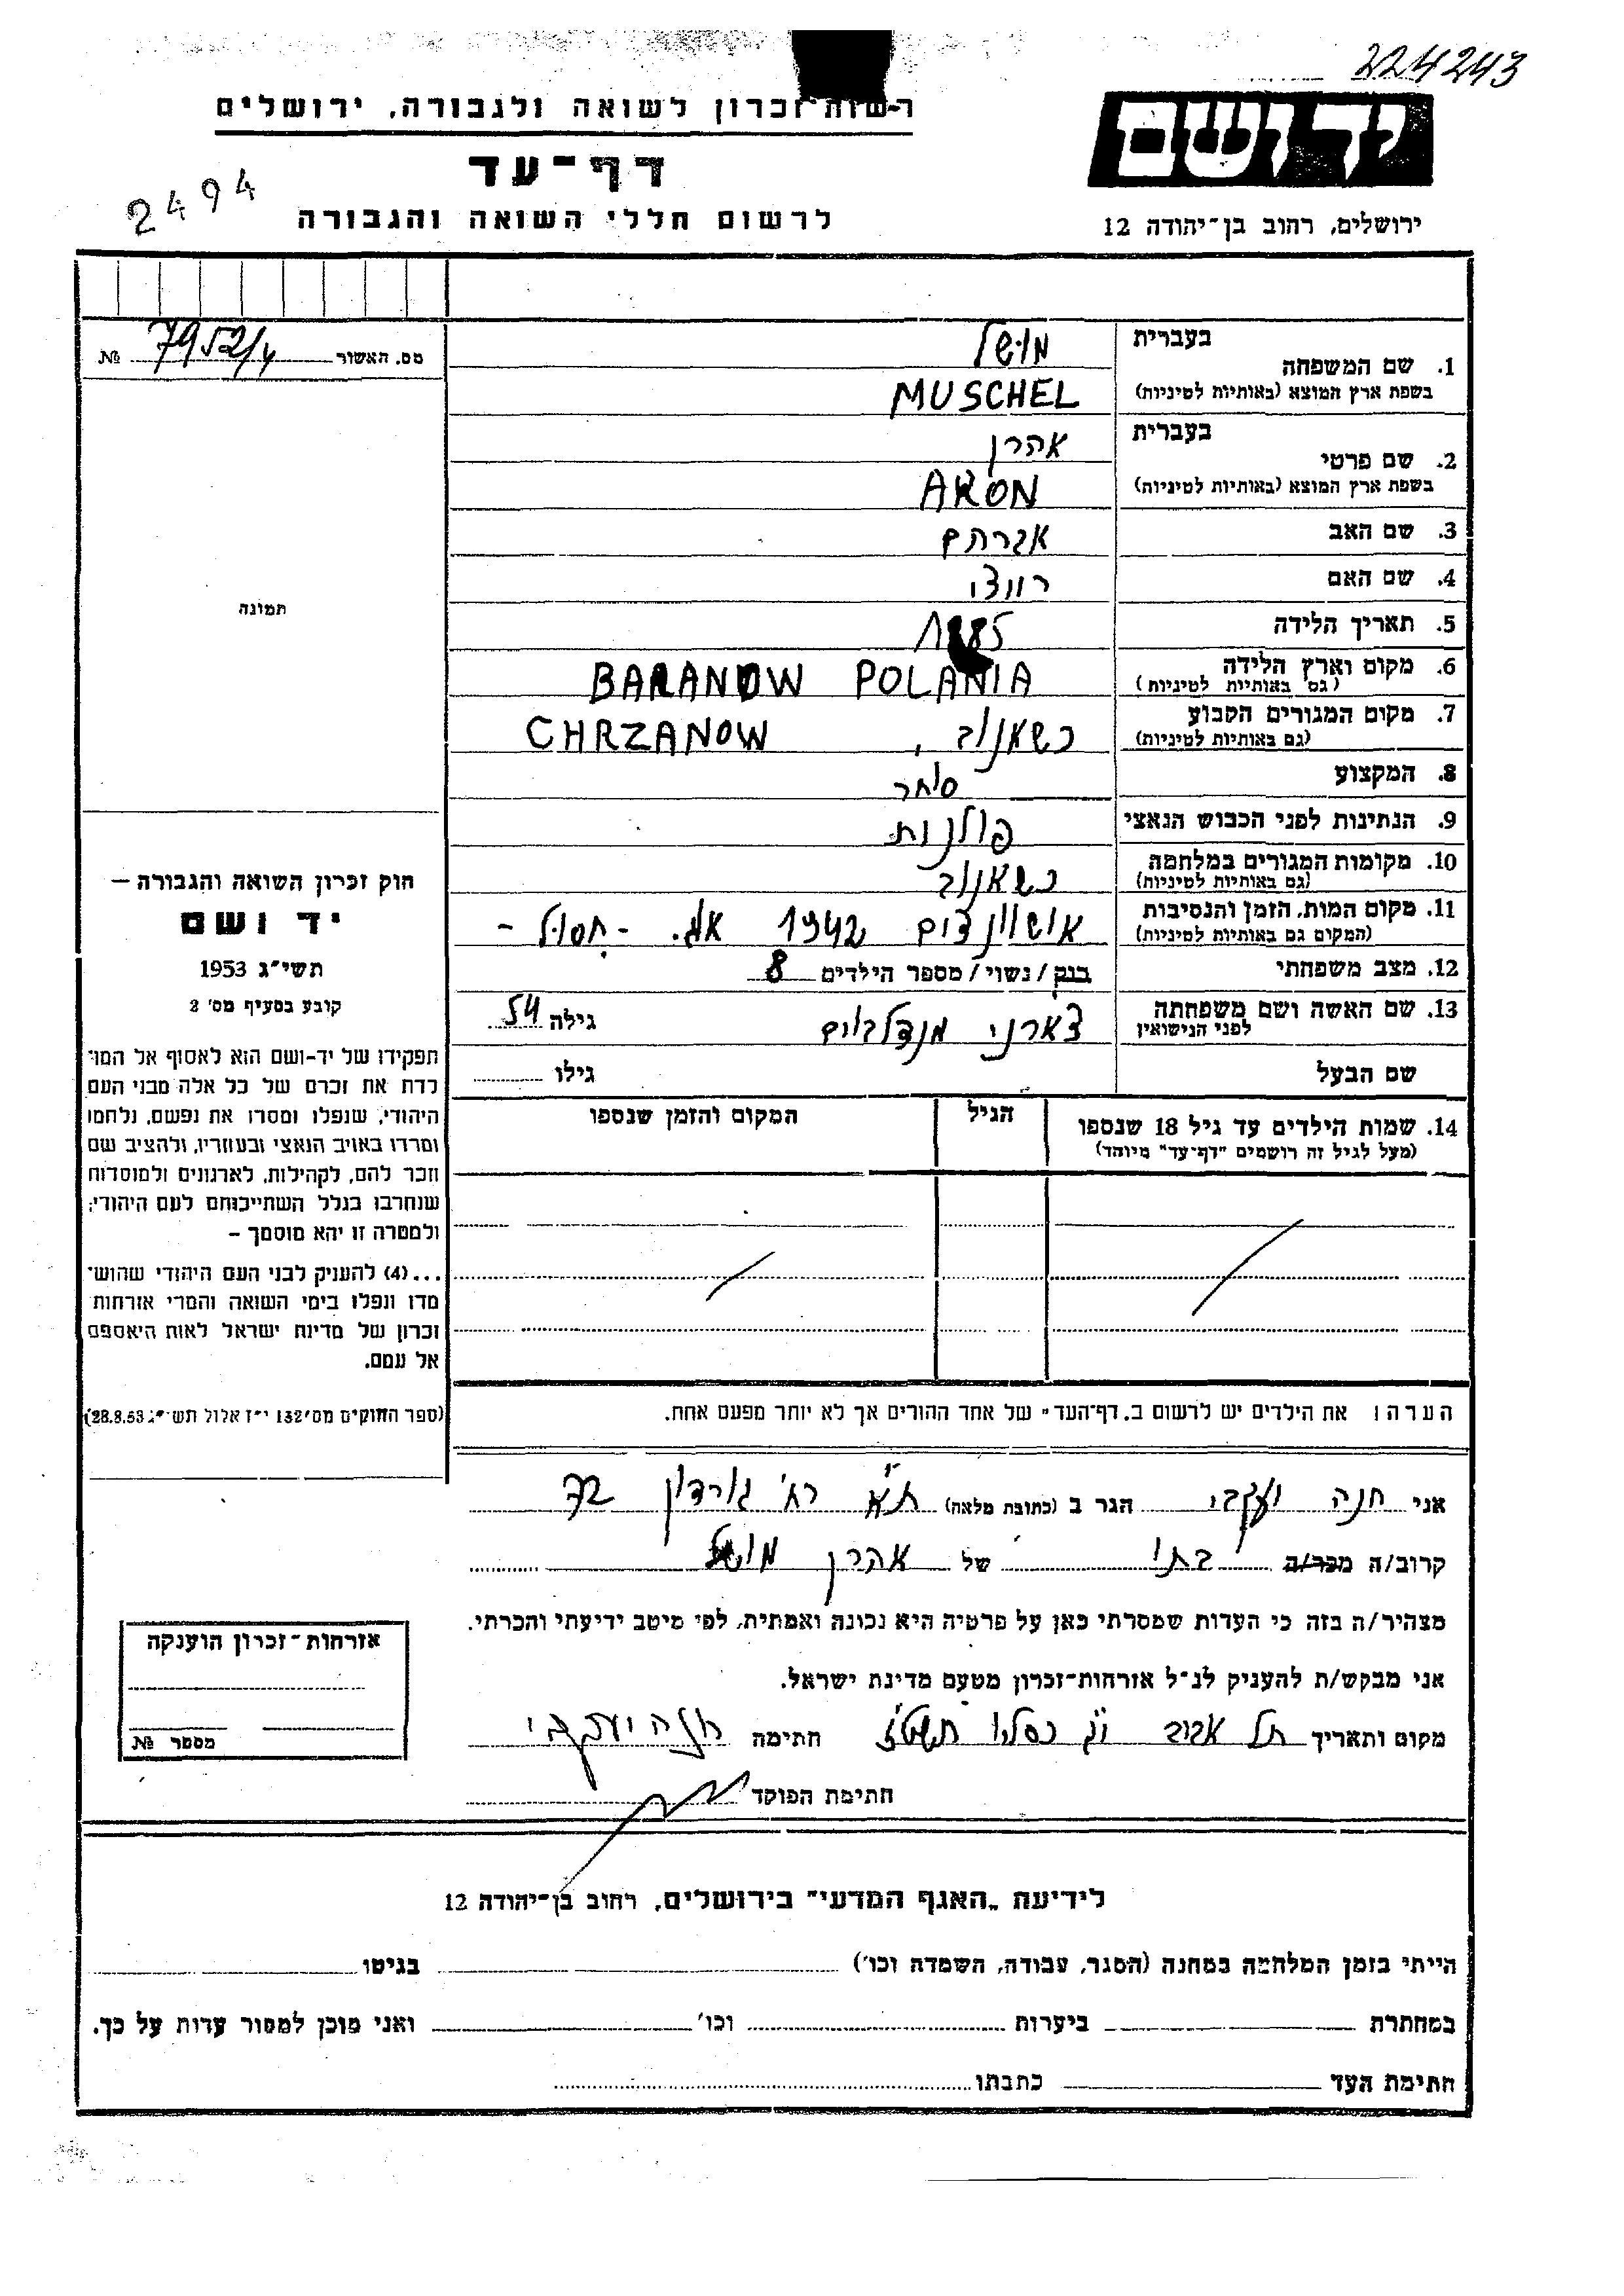 224243
רשות-זכרון לשואה ולגבורה, ירושלים
יד ושם
דף-עד
2494
לרשום חללי השואה והגבורה
ירושלים, רחוב בן-יהודה 12
מס. האשור 7952/4 №
תמונה
חוק זכרון השואה והגבורה –
יד ושם
תשי״ג 1953
קובע בסעיף מס' 2
תפקידו של יד-ושם הוא לאסוף אל המו־
לדת את זכרם של כל אלה מבני העם
היהודי, שנפלו ומסרו את נפשם, נלחמו
ומרדו באויב הנאצי ובעוזריו, ולהציב שם
וזכר להם, לקהילות, לארגונים ולמוסדות
שנחרבו בגלל השתייכותם לעם היהודי;
ולמטרה זו יהא מוסמך –
...(4) להעניק לבני העם היהודי שהוש־
מדו ונפלו בימי השואה והמרי אזרחות
זכרון של מדינת ישראל לאות היאספם
אל עמם.
(ספר החוקים מס' 132 י״ז אלול תשי״ג 28.8.53)
בעברית מושל
1. שם המשפחה
בשפת ארץ המוצא (באותיות לטיניות) MUSCHEL
בעברית אהרן
2. שם פרטי
בשפת ארץ המוצא (באותיות לטיניות) ARON
3. שם האב אברהם
4. שם האם
5. תאריך הלידה 1885
6. מקום וארץ הלידה BARANOW POLANIA
(גם באותיות לטיניות)
7. מקום המגורים הקבוע כשאנוב, CHRZANOW
(גם באותיות לטיניות)
8. המקצוע סוחר
9. הנתינות לפני הכבוש הנאצי פולנית
10. מקומות המגורים במלחמה כשאנוב
(גם באותיות לטיניות)
11. מקום המות, הזמן והנסיבות 1942
(המקום גם באותיות לטיניות)
12. מצב משפחתי רווק/נשוי/מספר הילדים 8
13. שם האשה ושם משפחתה לפני הנישואין צארני מנדלבוים גילה 54
שם הבעל גילו
14. שמות הילדים עד גיל 18 שנספו הגיל המקום והזמן שנספו
(מעל לגיל זה רושמים "דף-עד" מיוחד)
הערה: את הילדים יש לרשום ב„דף-העד" של אחד ההורים אך לא יותר מפעם אחת.
אני חנה יעקבי הגר ב (כתובת מלאה) ת״א רח' גורדון 72
קרוב/ה מכר/ה בתו של אהרן מושל
מצהיר/ה בזה כי העדות שמסרתי כאן על פרטיה היא נכונה ואמתית, לפי מיטב ידיעתי והכרתי.
אני מבקש/ת להעניק לנ״ל אזרחות-זכרון מטעם מדינת ישראל.
מקום ותאריך תל אביב כסלו חתימה חנה יעקבי
חתימת הפוקד
אזרחות-זכרון הוענקה
מספר №
לידיעת „האגף המדעי" בירושלים, רחוב בן-יהודה 12
הייתי בזמן המלחמה במחנה (הסגר, עבודה, השמדה וכו') בגיטו
במחתרת ביערות וכו' ואני מוכן למסור עדות על כך.
חתימת העד כתבתו